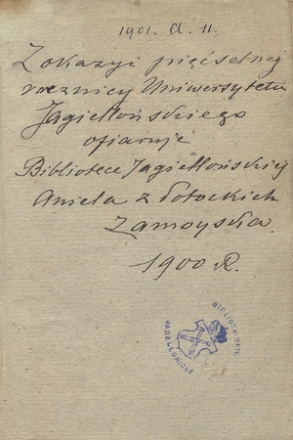 1901. A. 11.
Z okazyi pięćsetnej
rocznicy Uniwersytetu
Jagiellońskiego
ofiaruje
Bibliotece Jagiellońskiej
Aniela z Potockich
Zamoyska.
1900 R.